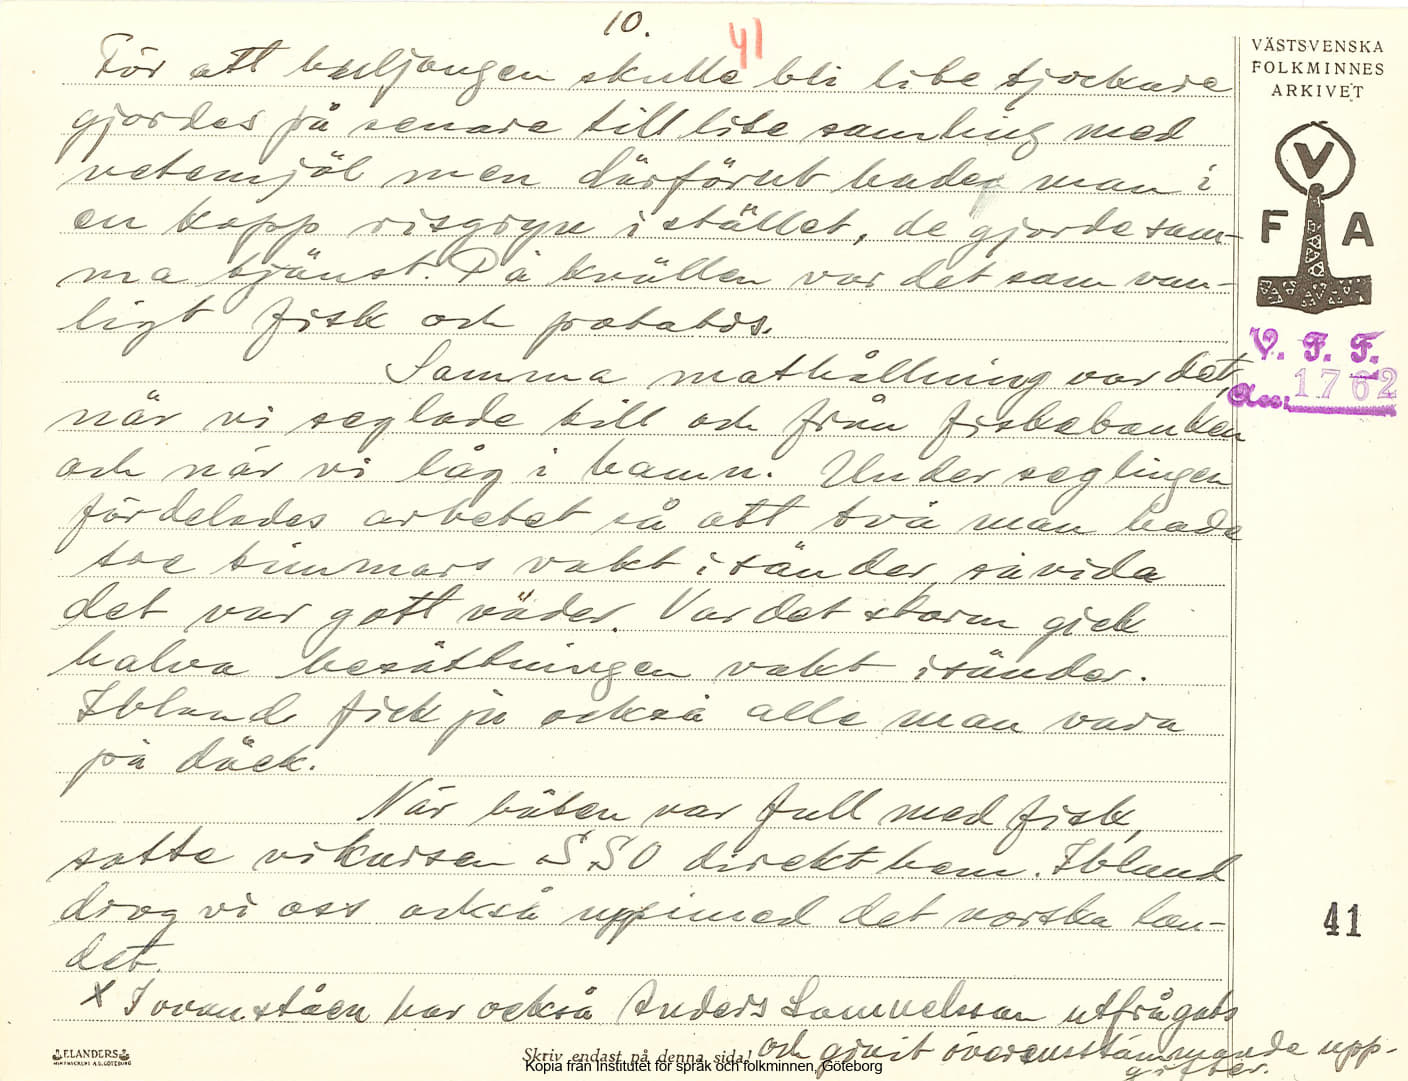 10.
41
För att buljongen skulle bli lite tjockare
gjordes på senare tid lite samling med
vetemjöl men därförut hade man i
en kopp risgryn i stället, de gjorde sam-
ma tjänst. På kvällen var det som van-
ligt fisk och potatis.
Samma mathållning var det,
när vi seglade till och från fiskebanken
och när vi låg i hamn. Under seglingen
fördelades arbetet så att två man hade
tre timmars vakt i sänder, såvida
det var gott väder. Var det storm gick
halva besättningen vakt i sänder.
Ibland fick ju också alle man vara
på däck.
När båten var full med fisk,
satte vi kursen SSO direkt hem. Ibland
drog vi oss också uppimed det norska lan-
det.
x I ovanståen har också Anders Samuelsson utfrågats
och givit överensstämmande upp-
gifter.
VÄSTSVENSKA
FOLKMINNES
ARKIVET
V
F A
V. F. F.
Acc: 1762
41
ELANDERS
Skriv endast på denna sida!
Kopia från Institutet för språk och folkminnen, Göteborg